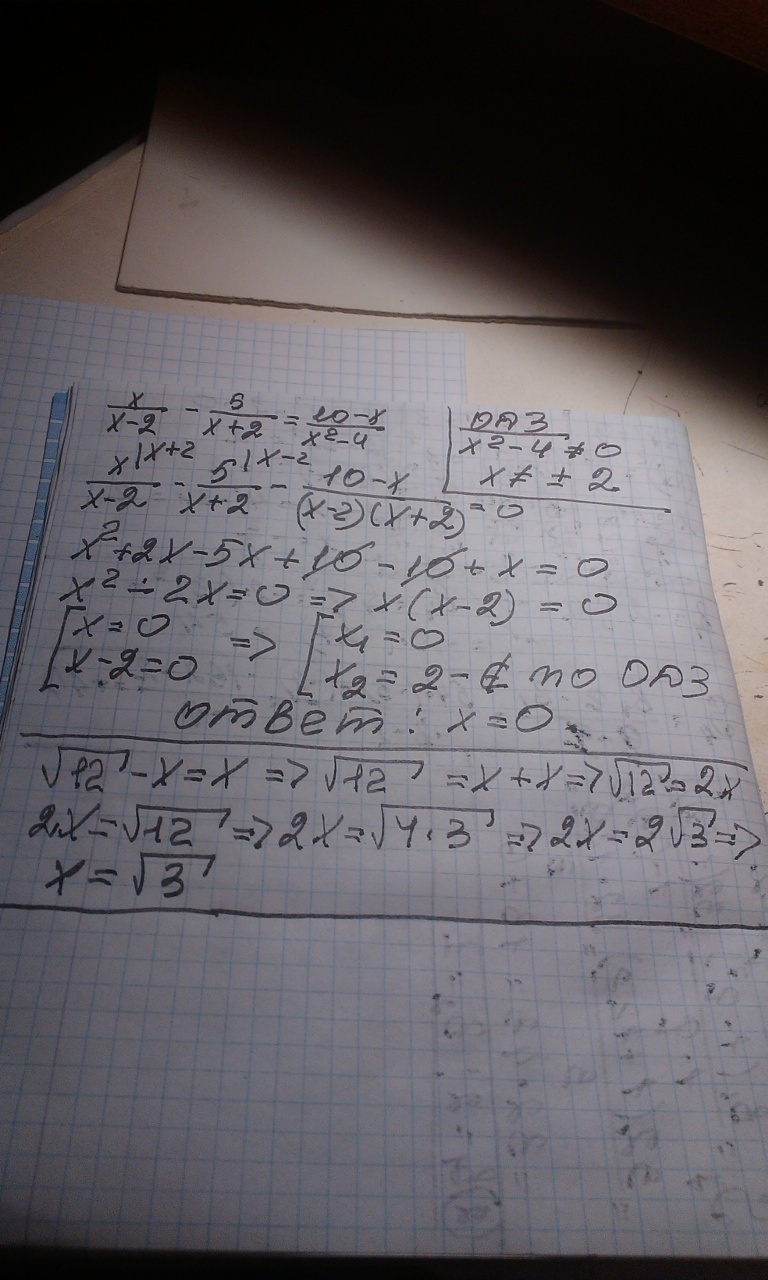 x/(x-2) - 5/(x+2) = (10-x)/(x²-4)
ОДЗ
x²-4≠0
x ≠ ± 2
x|x+2/(x-2) - 5|x-2/(x+2) - (10-x)/((x-2)(x+2)) = 0
x²+2x-5x+10-10+x=0
x²-2x=0 => x(x-2) = 0
[x=0 => [x₁=0
[x-2=0 [x₂=2-∉ по ОДЗ
ответ: x=0.
√12-x=x => √12 =x+x=>√12=2x
2x=√12=>2x=√4·3 => 2x=2√3=>
x=√3